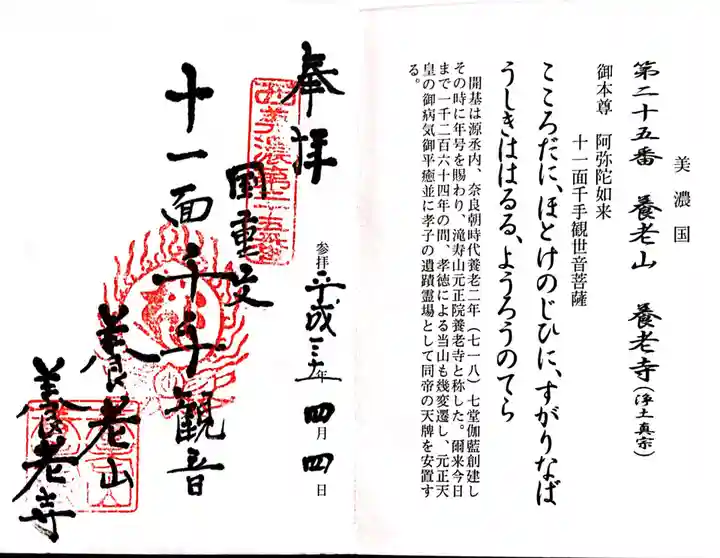 美濃国
第二十五番　養老山　養老寺(浄土真宗)
御本尊　阿弥陀如来
十一面千手観世音菩薩
こころだに、ほとけのじひに、すがりなば
うしきははるる、ようろうのてら
開基は源丞内、奈良朝時代養老二年（七一八）七堂伽藍創建し
その時に年号を賜わり、滝寿山元正院養老寺と称した。爾来今日
まで一千二百六十四年の間、孝徳による当山も幾変遷し、元正天
皇の御病気御平癒並に孝子の遺蹟霊場として同帝の天牌を安置す
る。
奉拝
参拝 平成 年 四月四日
国重文
十一面千手観音
養老山
養老寺